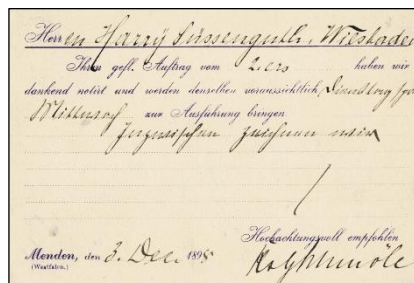 Herren Harry Süssenguth, Wiesbaden
Ihren gefl. Auftrag vom 2. ers haben wir
dankend notirt und werden denselben voraussichtlich, Dienstag
Mittwoch zur Ausführung bringen
Inzwischen zeichnen wir
Hochachtungsvoll empfohlen
Menden, den 3. Dec. 1895
(Westfalen.)